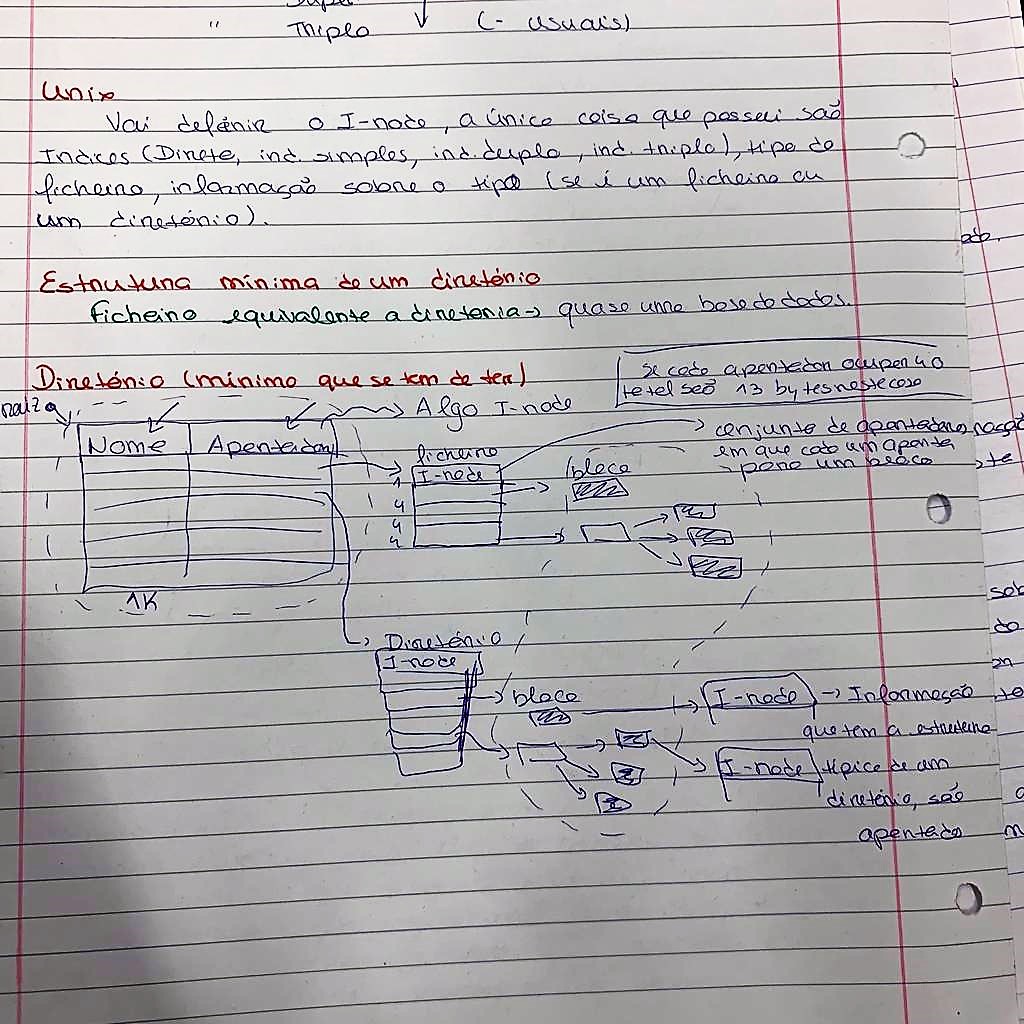 " Triplo (- usuais)
Unix
Vai definir o I-node, a única coisa que possui são
Indices (Direte, ind. simples, ind. duplo, ind. triplo), tipo do
ficheiro, informação sobre o tipo (se é um ficheiro ou
um diretório).
Estrutura mínima de um diretório
ficheiro equivalente a diretoria → quase uma base de dados.
Diretório (mínimo que se tem de ter)
se cada apontador ocupar 4 o
total são 13 bytes neste caso
raiz
Algo I-node
Nome Apontador
conjunto de apontadores
em que cada um aponta
para um bloco
ficheiro
I-node
1
4
4
4
bloco
1K
Diretório
I-node
bloco
I-node → Informação
que tem a estrutura
I-node típica de um
diretório, são
apontado